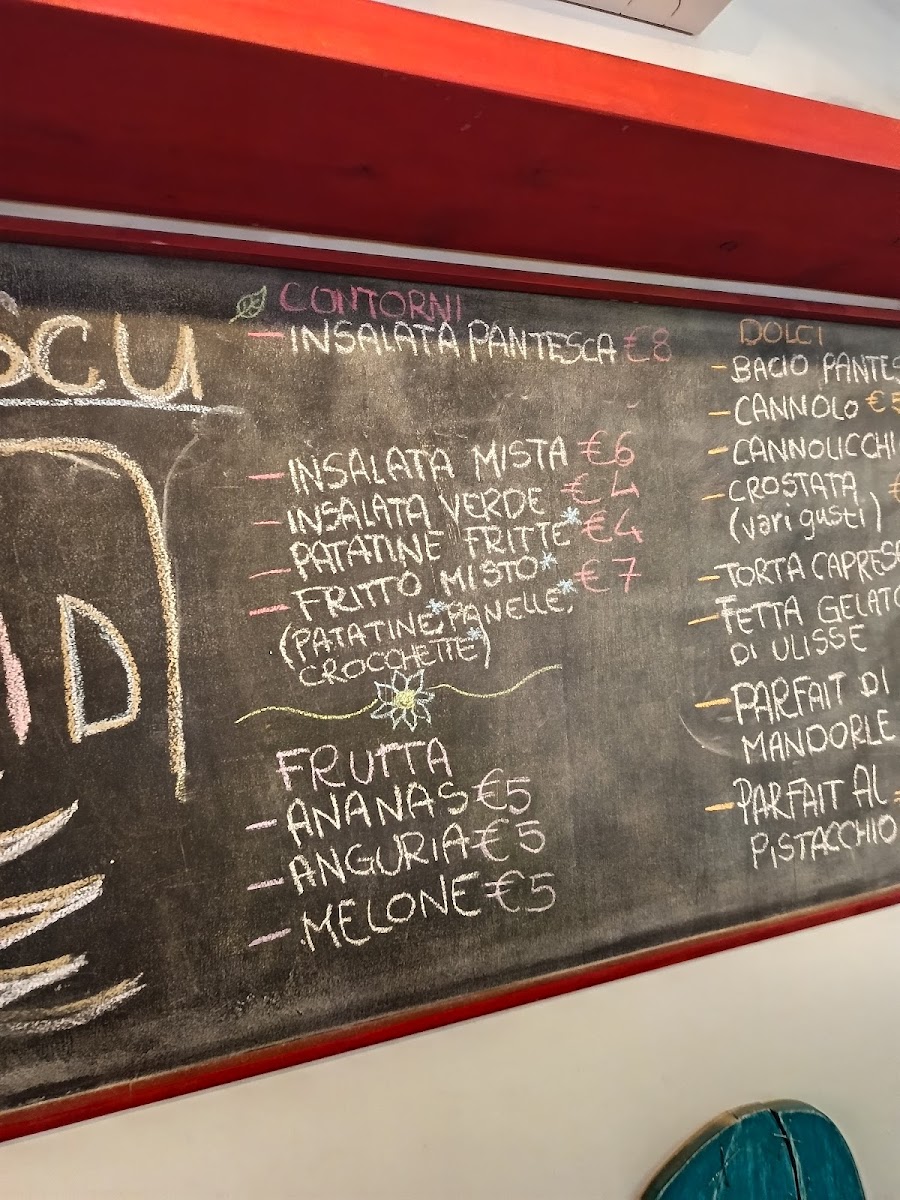 CONTORNI
- INSALATA PANTESCA €8
- INSALATA MISTA €6
- INSALATA VERDE €4
- PATATINE FRITTE* €4
- FRITTO MISTO* €7
(PATATINE*, PANELLE*,
CROCCHETTE*)
FRUTTA
- ANANAS €5
- ANGURIA €5
- MELONE €5
DOLCI
- BACIO
- CANNOLO €5
- CANNOLICCHI
- CROSTATA €
(vari gusti)
- TORTA
- FETTA GELATO
DI ULISSE
- PARFAIT DI
MANDORLE
- PARFAIT AL
PISTACCHIO